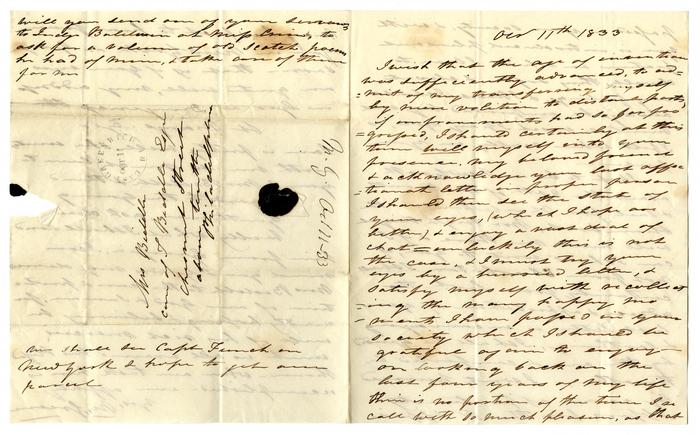 will you send one of your servants
to Judge Baldwin at Miss , to
ask for a volume of old Scotch poems
he had of mine, & take care of them
for me
M. G. Oct 11 - 33
Mrs Biddle
care of T Biddle Esqr
Chesnut Street
above tenth
Philadelphia
We shall see Capt Finch in
New York & hope to get our
parcel
Oct 11th 1833
I wish that the age of invention
was sufficiently advanced, to ad-
=mit of my transferring myself
by mere volition to distant parts,
if improvements had so far pro
gressed, I should certainly at this
time will myself into your
presence, my beloved friend
& acknowledge your last affec
tionate letter in proper person
I should then see the state of
your eyes, (which I hope are
better) & enjoy a vast deal of
chat = unluckily this is not
the case, & I must try your
eyes by a letter, &
satisfy myself with recollec
=ing the many happy mo
=ments I have passed in your
society which I should be
grateful if able to enjoy
on looking back on the
last four years of my life
there is no portion of the time I re
call with so much pleasure, as that